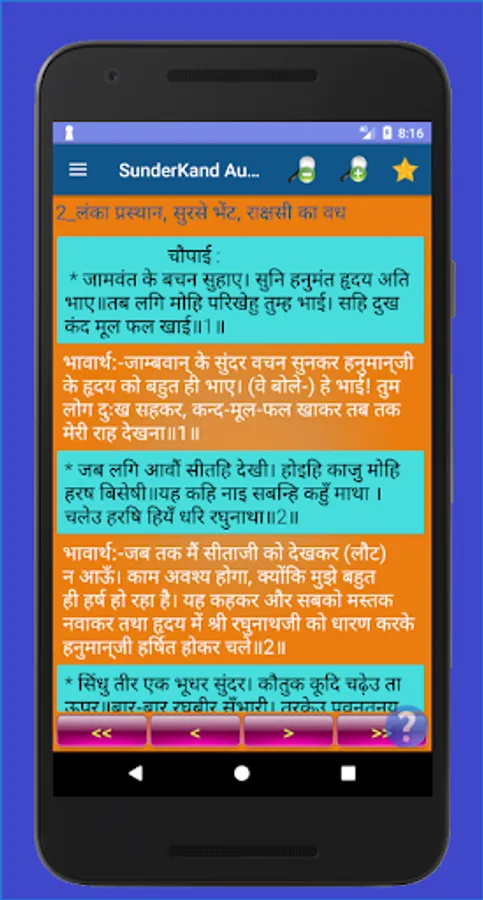 8:16
SunderKand Au...
2_लंका प्रस्थान, सुरसे भेंट, राक्षसी का वध
चौपाई :
* जामवंत के बचन सुहाए। सुनि हनुमंत हृदय अति
भाए॥तब लगि मोहि परिखेहु तुम्ह भाई। सहि दुख
कंद मूल फल खाई॥1॥
भावार्थ:-जाम्बवान् के सुंदर वचन सुनकर हनुमान्‌जी
के हृदय को बहुत ही भाए। (वे बोले-) हे भाई! तुम
लोग दुःख सहकर, कन्द-मूल-फल खाकर तब तक
मेरी राह देखना॥1॥
* जब लगि आवौं सीतहि देखी। होइहि काजु मोहि
हरष बिसेषी॥यह कहि नाइ सबन्हि कहुँ माथा ।
चलेउ हरषि हियँ धरि रघुनाथा॥2॥
भावार्थ:-जब तक मैं सीताजी को देखकर (लौट)
न आऊँ। काम अवश्य होगा, क्योंकि मुझे बहुत
ही हर्ष हो रहा है। यह कहकर और सबको मस्तक
नवाकर तथा हृदय में श्री रघुनाथजी को धारण करके
हनुमान्‌जी हर्षित होकर चले॥2॥
* सिंधु तीर एक भूधर सुंदर। कौतुक कूदि चढ़ेउ ता
ऊपर॥बार-बार रघुबीर सँभारी। तरकेउ पवनतनय
<< < > >> ?